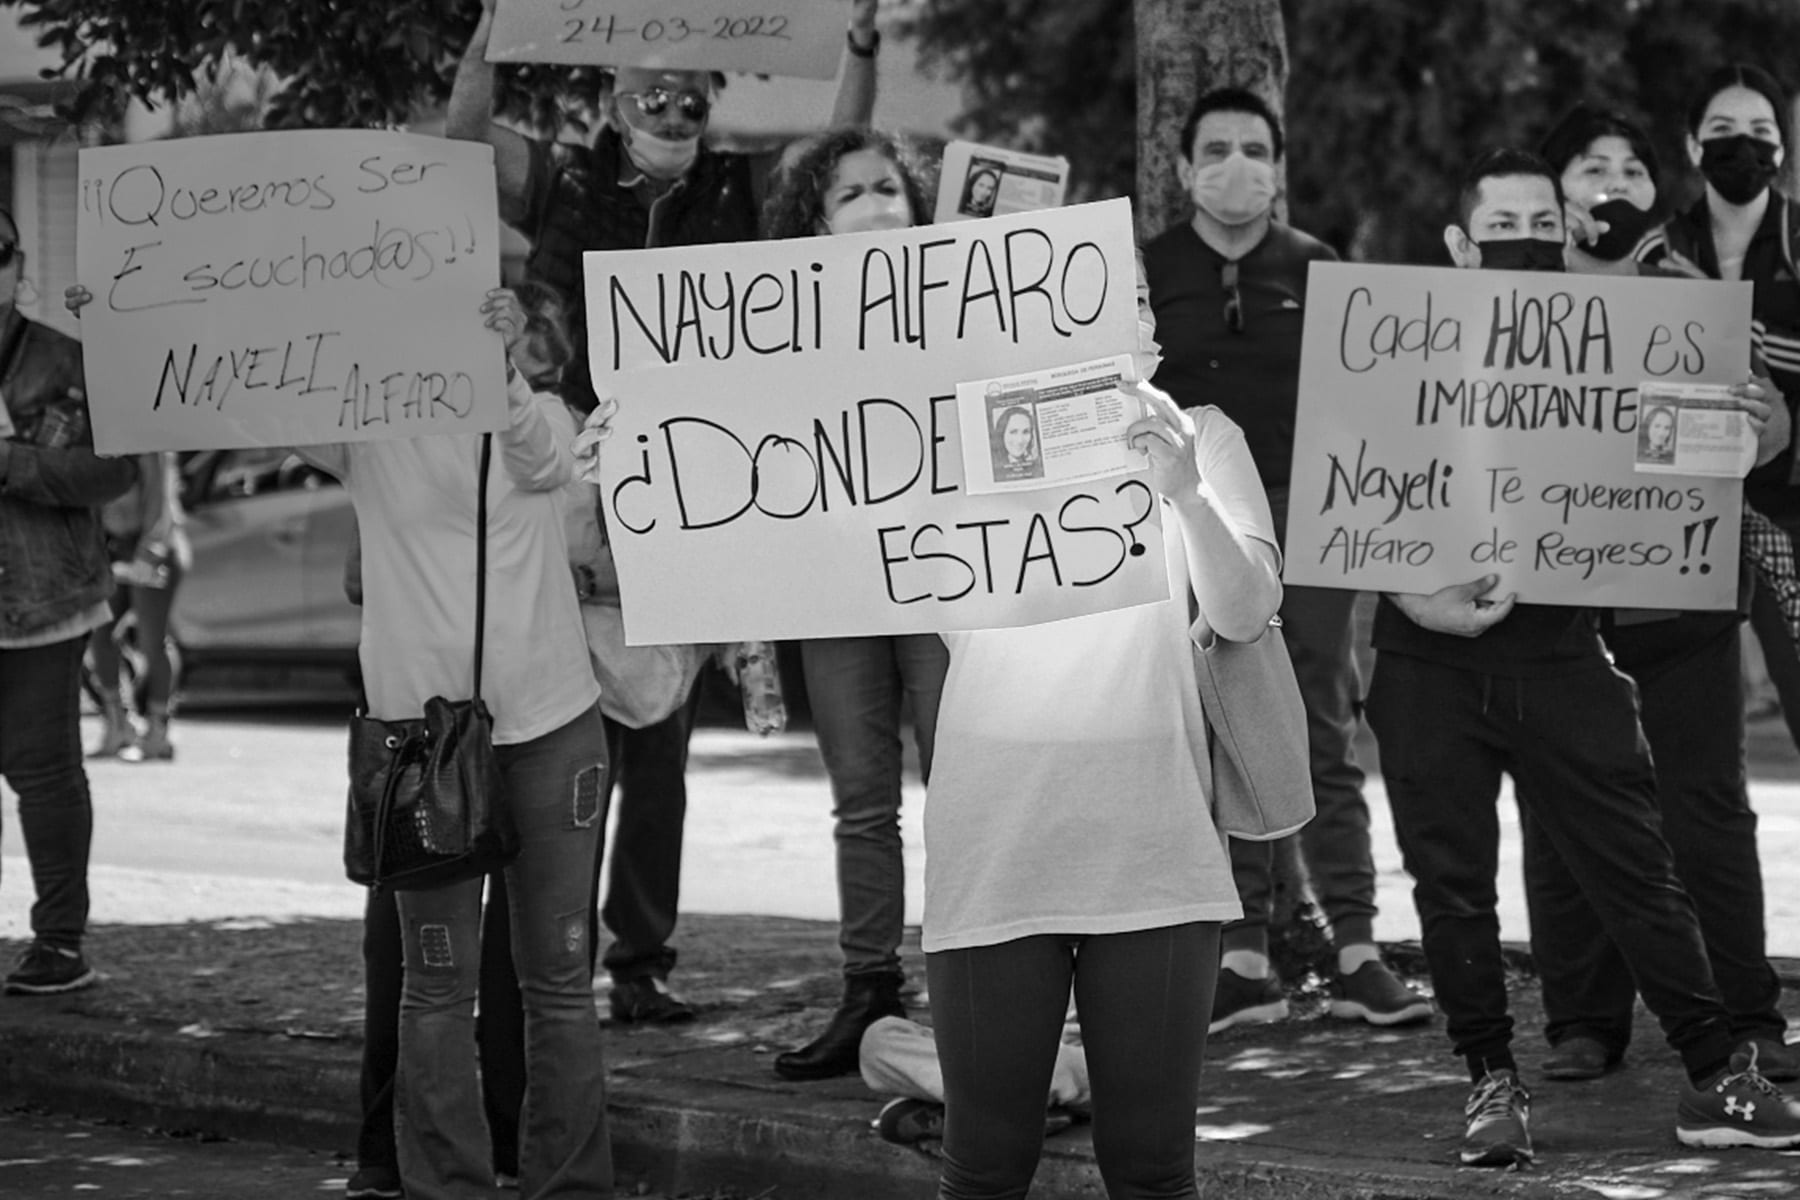 24-03-2022
¡¡Queremos ser
Escuchad@s!!
NAYELI
ALFARO
NAYELI ALFARO
¿DONDE
ESTAS?
BÚSQUEDA DE PERSONAS
Cada HORA es
IMPORTANTE
Nayeli Te queremos
Alfaro de Regreso!!